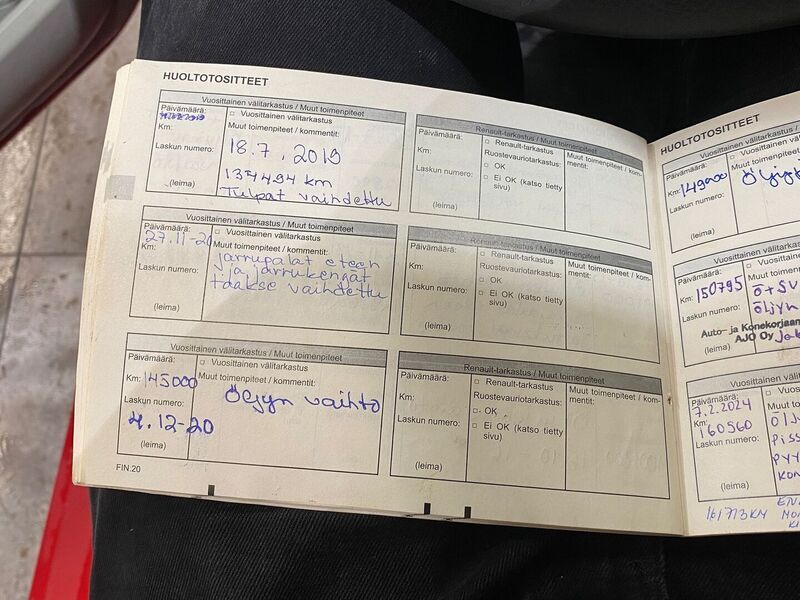 HUOLTOTOSITTEET
Vuosittainen välitarkastus / Muut toimenpiteet
Päivämäärä:
□ Vuosittainen välitarkastus
Km:
Muut toimenpiteet / kommentit:
Laskun numero:
18.7.2019
137494 km
Tulpat vaihdettu
(leima)
Vuosittainen välitarkastus / Muut toimenpiteet
27.11-20
□ Vuosittainen välitarkastus
Km:
Muut toimenpiteet / kommentit:
Laskun numero:
jarrupalat eteen
ja jarrukengät
taakse vaihdettu
(leima)
Vuosittainen välitarkastus / Muut toimenpiteet
Päivämäärä:
□ Vuosittainen välitarkastus
Km: 145000
Muut toimenpiteet / kommentit:
Laskun numero:
Öljyn vaihto
4.12-20
(leima)
FIN.20
Renault-tarkastus / Muut toimenpiteet
Päivämäärä:
□ Renault-tarkastus
Muut toimenpiteet / kommentit:
Km:
Ruostevauriotarkastus:
Laskun numero:
□ OK
□ Ei OK (katso tietty sivu)
(leima)
Renault-tarkastus / Muut toimenpiteet
Päivämäärä:
□ Renault-tarkastus
Muut toimenpiteet / kom-
mentit:
Km:
Ruostevauriotarkastus:
Laskun numero:
□ OK
□ Ei OK (katso tietty
sivu)
(leima)
Renault-tarkastus / Muut toimenpiteet
Päivämäärä:
□ Renault-tarkastus
Muut toimenpiteet / kom-
mentit:
Km:
Ruostevauriotarkastus:
Laskun numero:
□ OK
□ Ei OK (katso tietty
sivu)
(leima)
HUOLTOTOSITTEET
Vuosittainen
Päivämäärä:
□ Vuosittainen väli
Km: 149000
Muut toimenpiteet
Laskun numero:
(leima)
Vuosittainen väli
Päivämäärä:
□ Vuosittainen
Km: 150795
Muut toimen
Laskun numero:
öljyn
Auto- ja Konekorjaam
AJO Oy
(leima)
Vuosittainen
7.2.2024
□ Vuosittai
Km: 160560
Muut toim
Laskun numero:
(leima)
161713KM